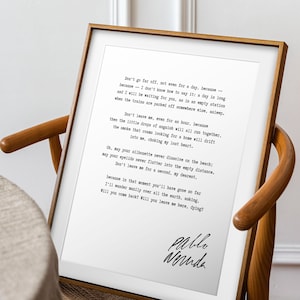 Don't go far off, not even for a day, because —
because — I don't know how to say it: a day is long
and I will be waiting for you, as in an empty station
when the trains are parked off somewhere else, asleep.
Don't leave me, even for an hour, because
then the little drops of anguish will all run together,
the smoke that roams looking for a home will drift
into me, choking my lost heart.
Oh, may your silhouette never dissolve on the beach;
may your eyelids never flutter into the empty distance.
Don't leave me for a second, my dearest,
because in that moment you'll have gone so far
I'll wander mazily over all the earth, asking,
Will you come back? Will you leave me here, dying?
Pablo
Neruda